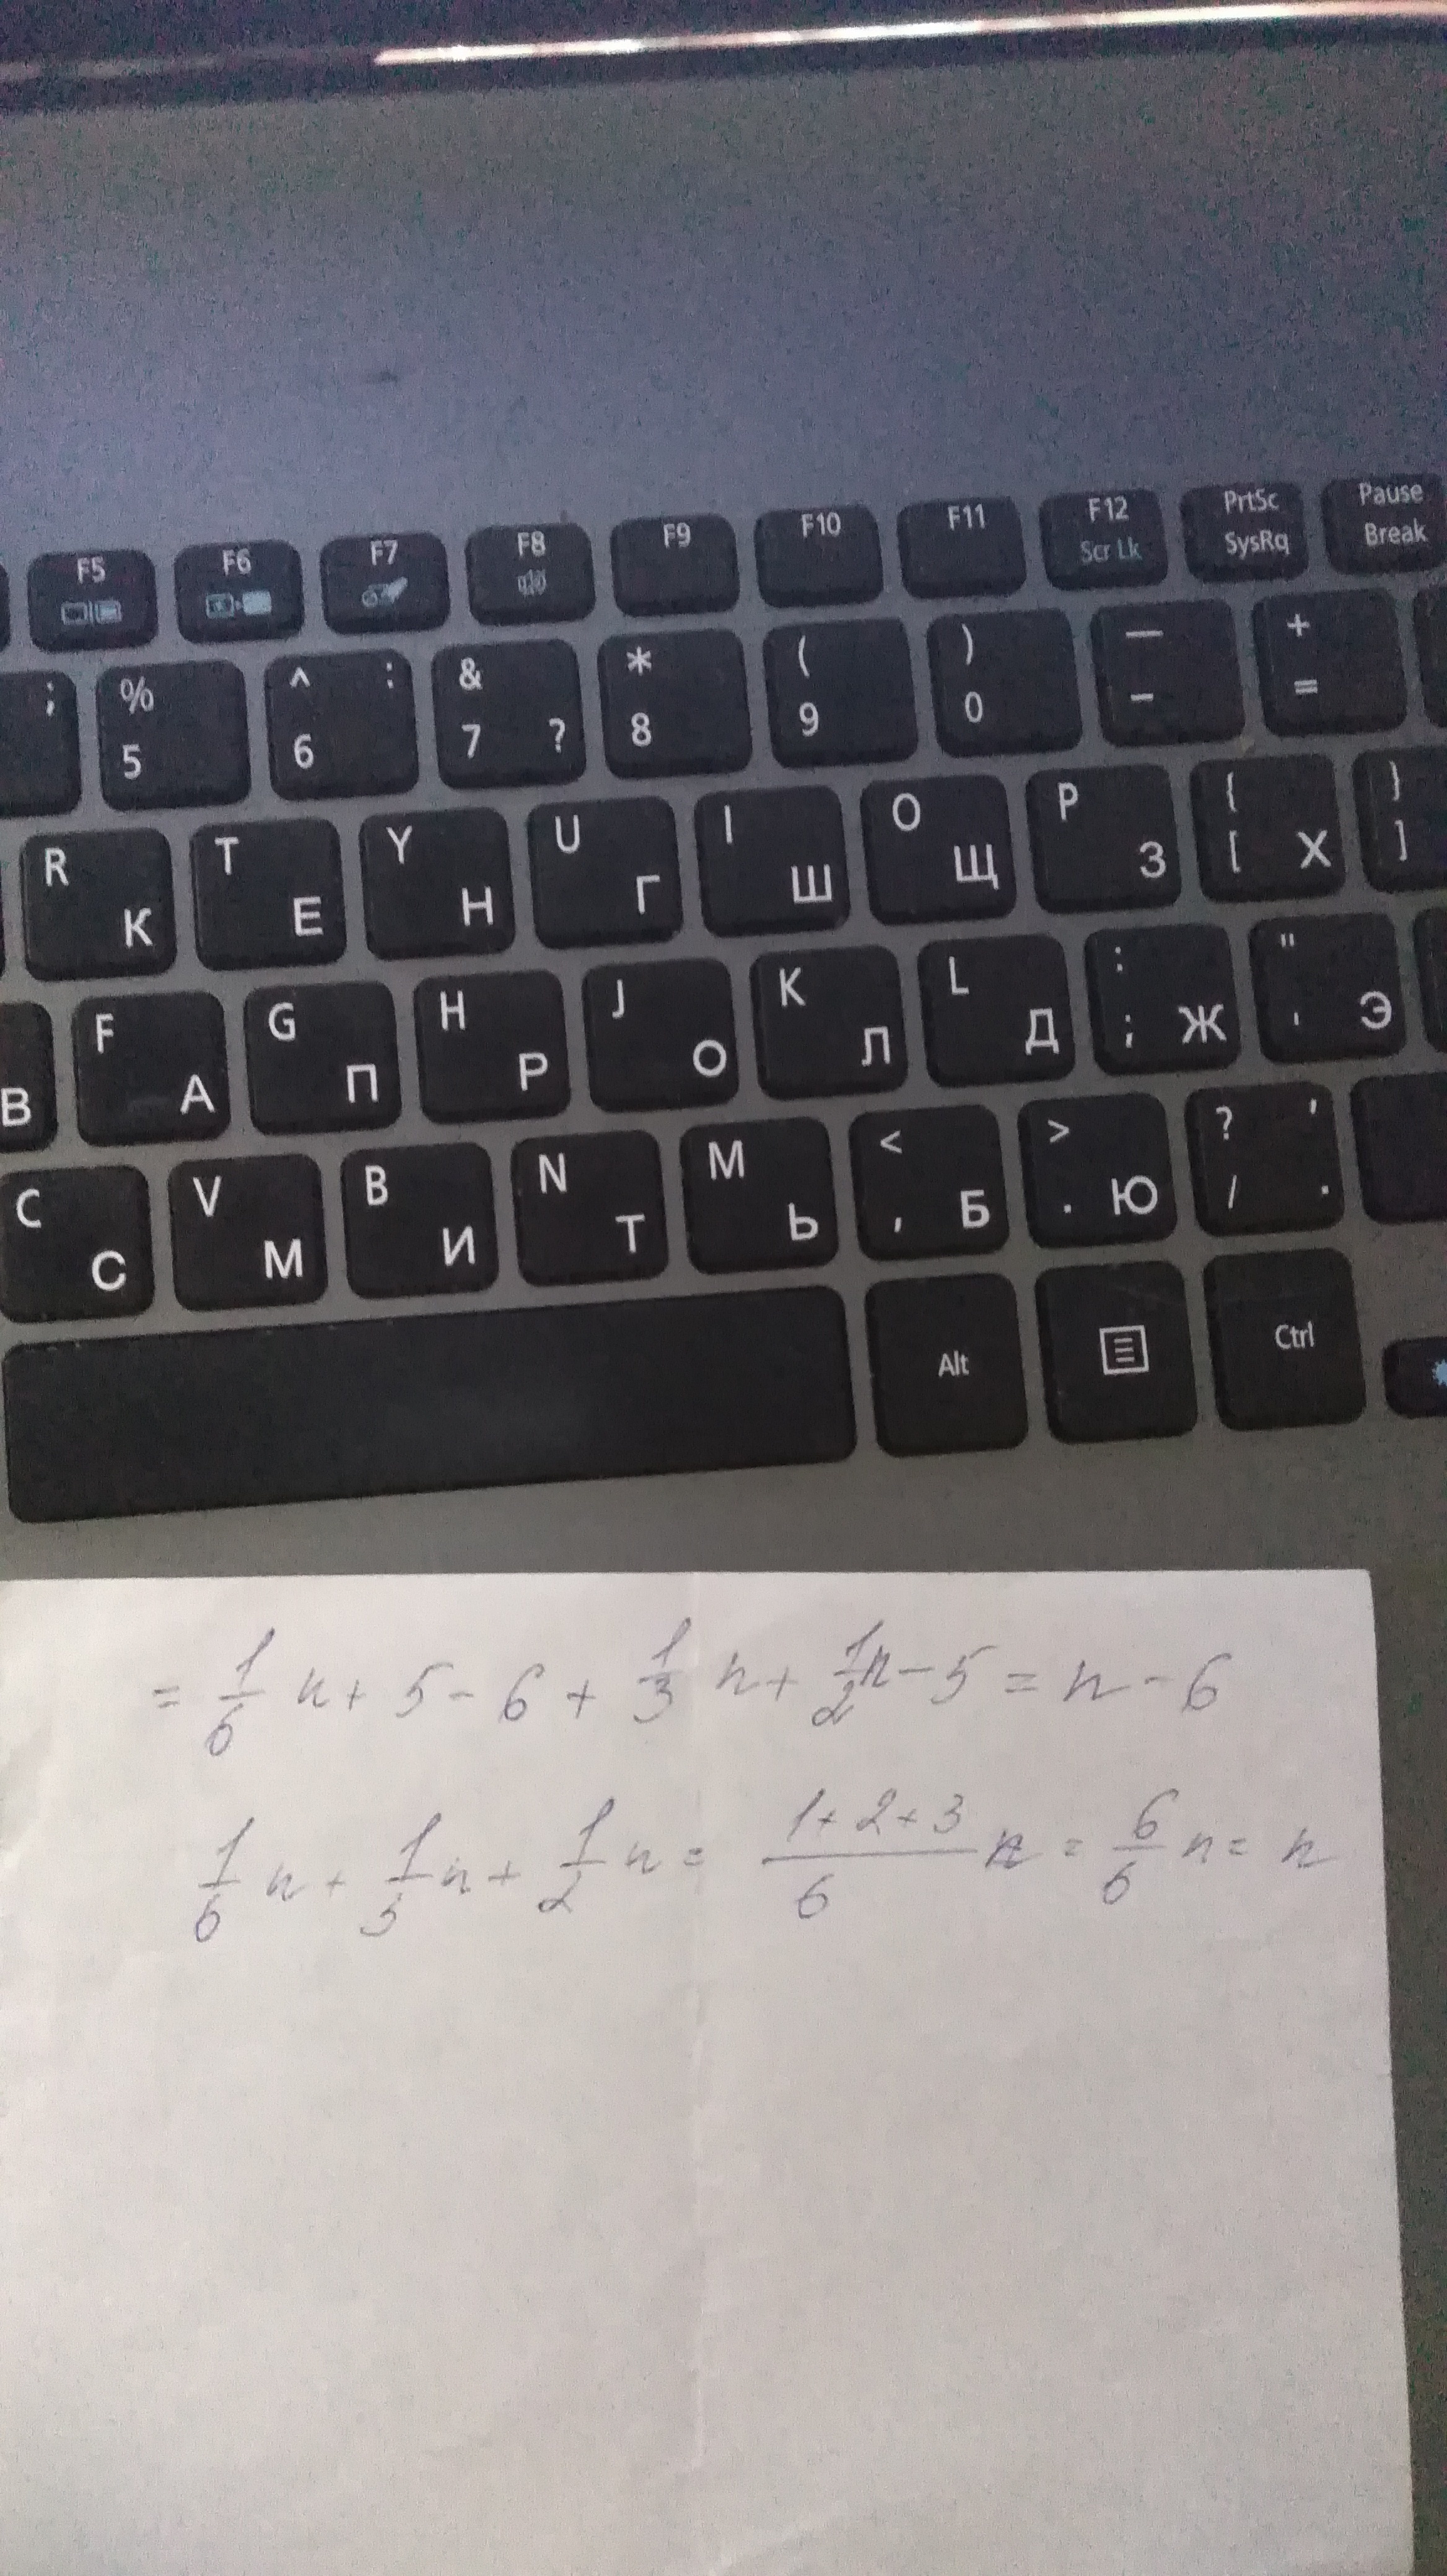 F5 F6 F7 F8 F9 F10 F11 F12 PrtSc Pause
Scr Lk SysRq Break
; % ^ : & * ( ) — +
5 6 7 ? 8 9 0 - =
R T Y U I O P { }
К Е Н Г Ш Щ З [ Х ]
F G H J K L : "
В А П Р О Л Д ; Ж ' Э
C V B N M < > ? '
С М И Т Ь , Б . Ю / .
Alt Ctrl
= 1/6 n + 5 - 6 + 1/3 n + 1/2 n - 5 = n - 6
1/6 n + 1/3 n + 1/2 n = (1+2+3)/6 n = 6/6 n = n